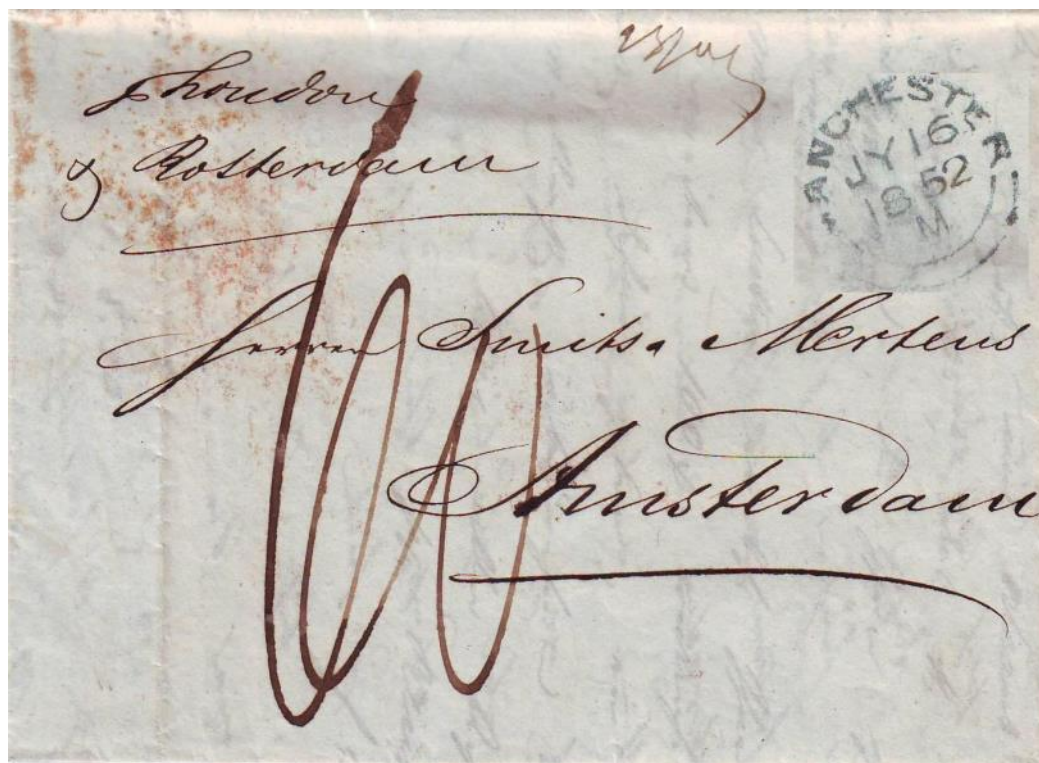 London
& Rotterdam
ANCHESTER
JY 16
1852
M
Herren Smits Mertens
Amsterdam